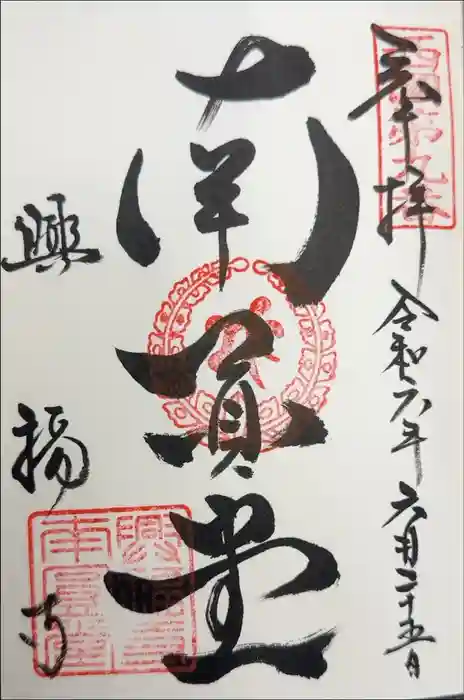 奉拝 令和六年六月二十五日
西国第九番
南円堂
興福寺
興福寺南円堂